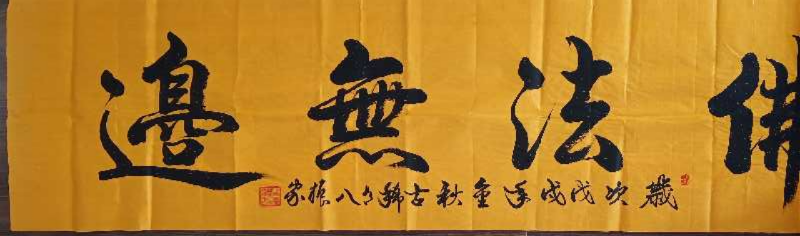 佛法無邊
歲次戊戌年重秋古稀久八振家